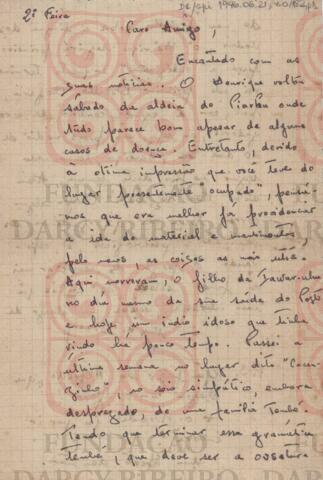 DR/spi 1950.06.21,
2ª Feira
Caro Amigo,
Encantado com as
suas notícias. O Henrique voltou
sábado da aldeia do Piarhu onde
tudo parece bom apesar de alguns
casos de doença. Entretanto, devido
à ótima impressão que você teve do
lugar presentemente "ocupado", pensa-
mos que era melhor já providenciar
a ida do material e mantimentos,
pelo menos, as coisas as mais uteis.
Aqui morreram, o filho da
no dia mesmo da sua saida do Posto
e hoje um indio idoso que tinha
vindo ha pouco tempo. Passei a
última semana no lugar dito
no sono simpático, embora
desprezado, de uma família Tembé.
Tendo que terminar essa gramática
tembé, que deve ser a ossatura
FUNDAÇÃO
DARCY RIBEIRO
FUNDAÇÃO
DARCY RIBEIRO